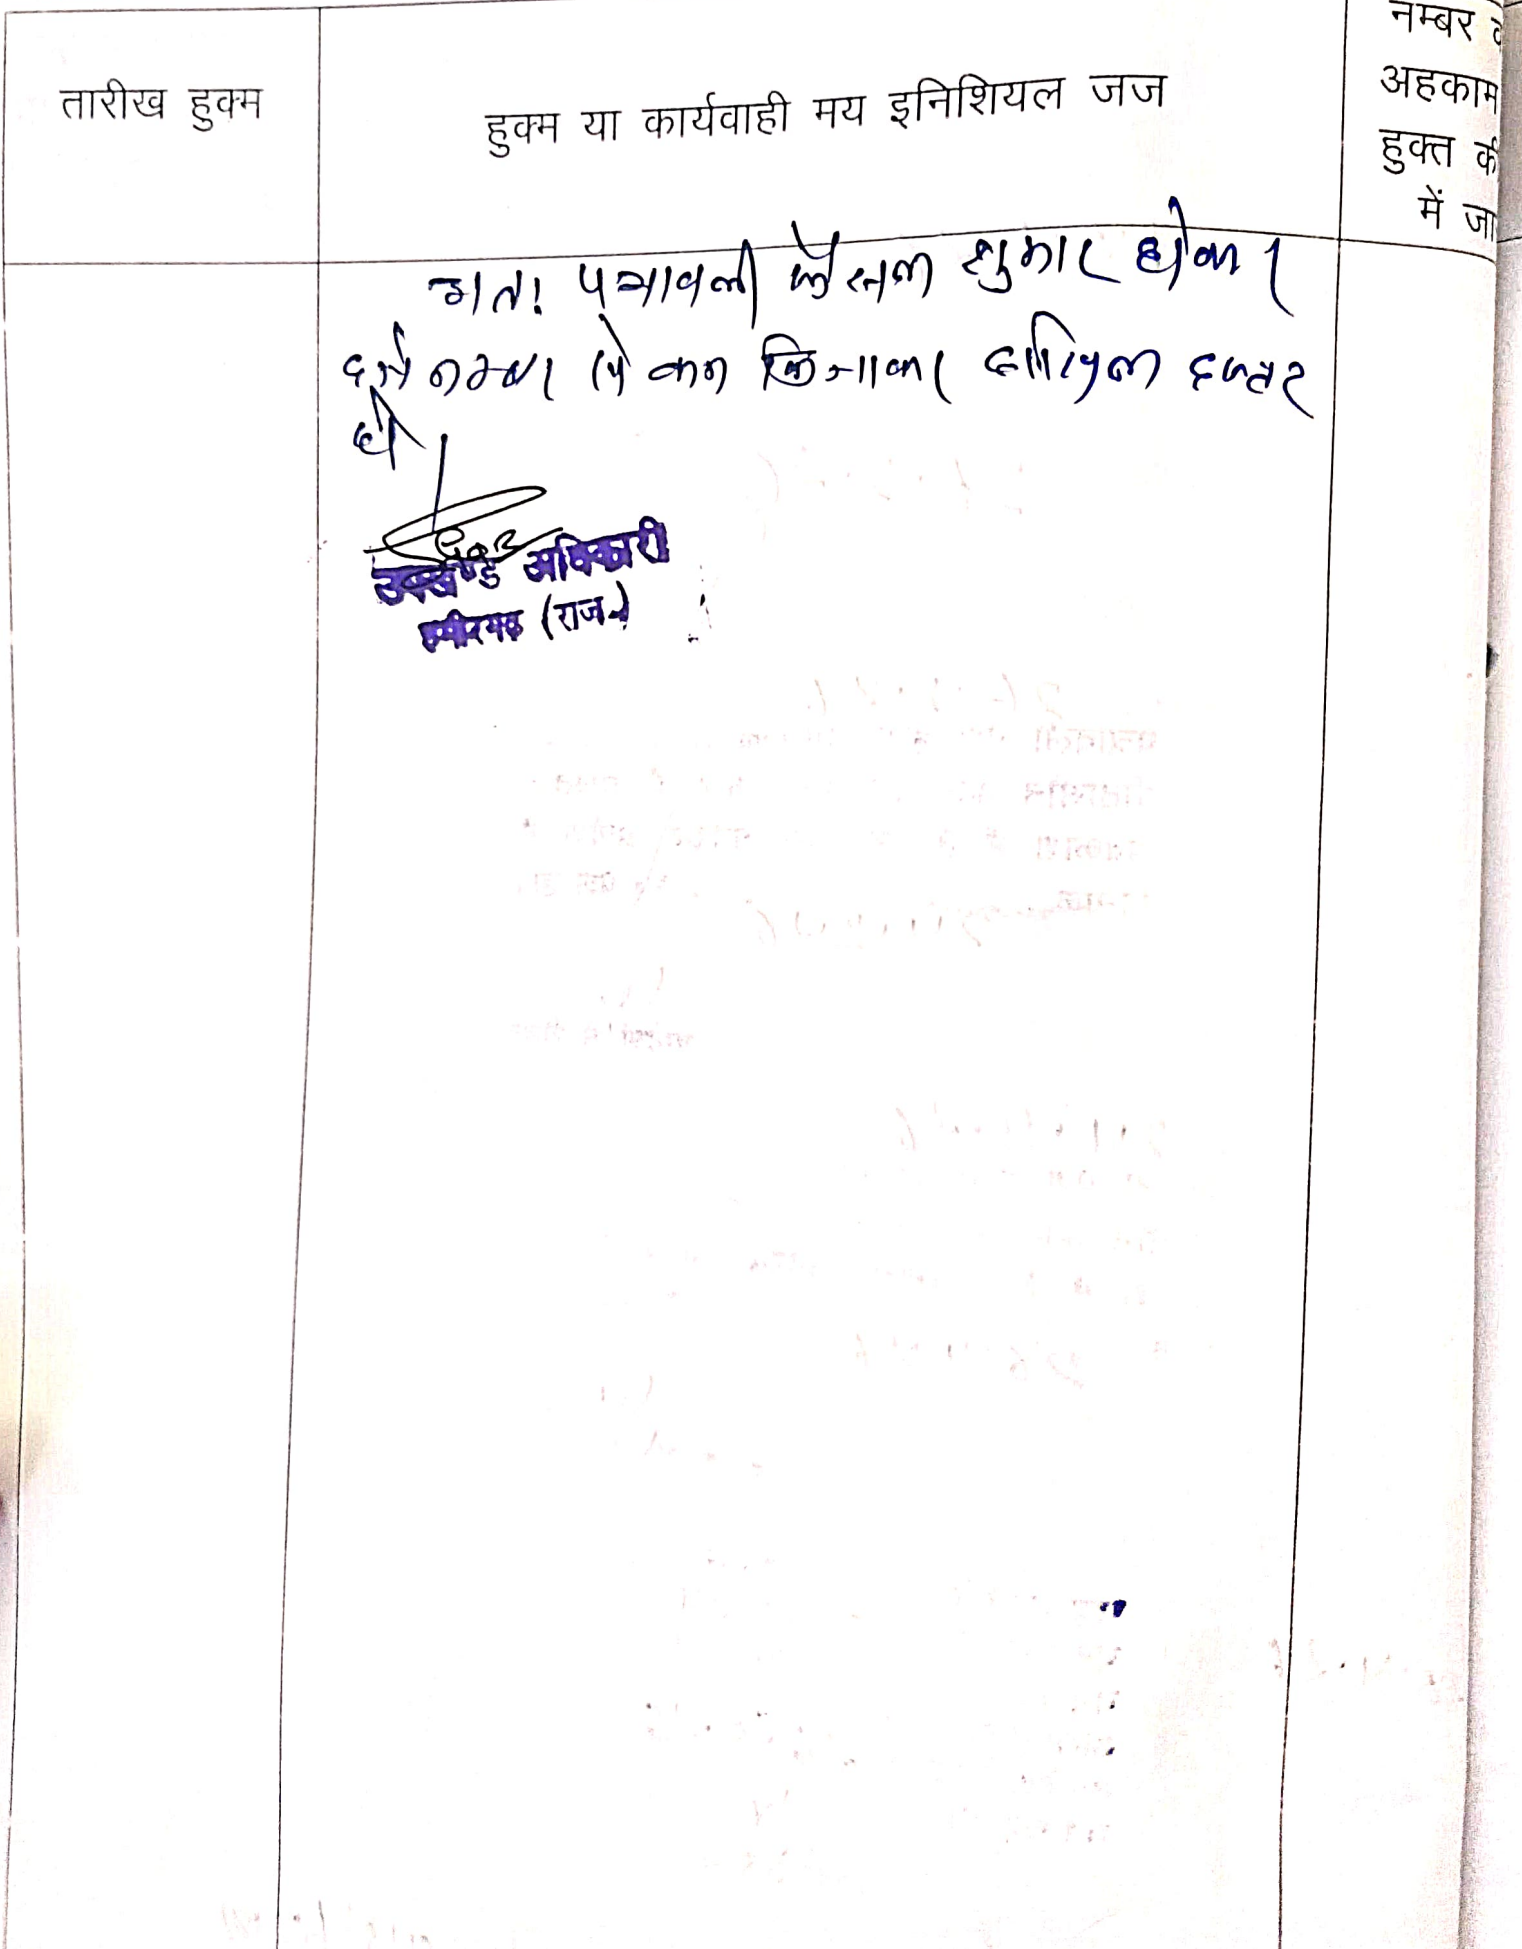 तारीख हुक्म
हुक्म या कार्यवाही मय इनिशियल जज
नम्बर
अहकाम
हुक्त की
में जा
अतः पत्रावली फैसल शुमार होकर
दर्ज नम्बर से कम किया जाकर दाखिल दफ्तर
हो
उपखण्ड अधिकारी
हमीरगढ (राज.)